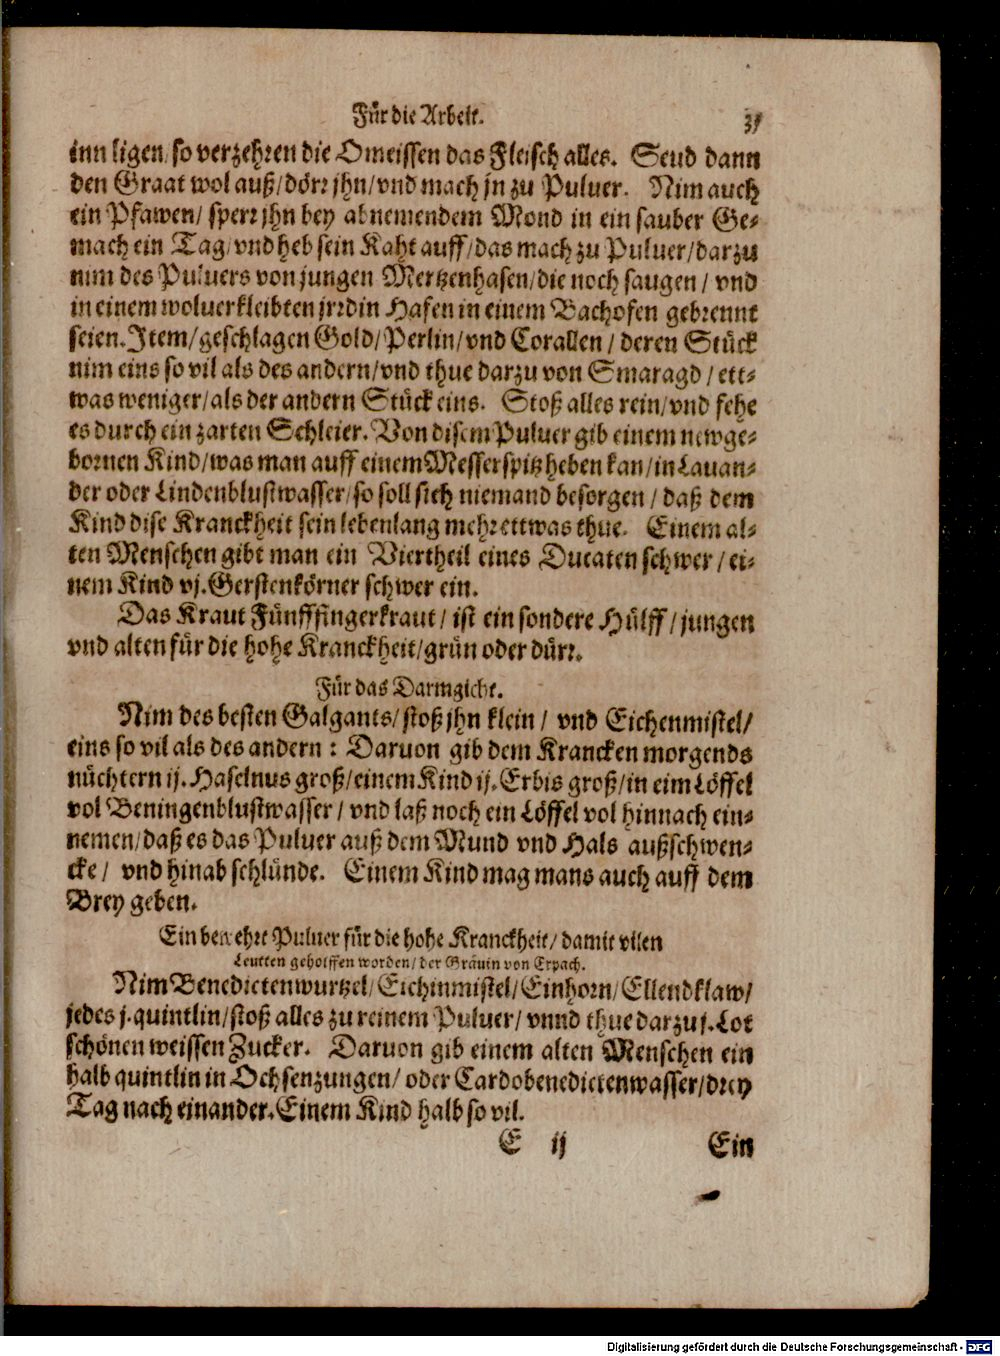 Für die Arbeit. 35
inn ligen/ so verzehren die Omeissen das Fleisch alles. Seud dann
den Graat wol auß/dörr jhn/vnd mach jn zu Puluer. Nim auch
ein Pfawen/ sperr jhn bey abnemendem Mond in ein sauber Ge-
mach ein Tag/vnd heb sein Kaht auff/das mach zu Puluer/darzu
nim des Puluers von jungen Mertzenhasen/die noch saugen/ vnd
in einem woluerkleibten jrrdin Hafen in einem Bachofen gebrennt
seien. Item/geschlagen Gold/Perlin/vnd Corallen/ deren Stück
nim eins so vil als des andern/vnd thue darzu von Smaragd/ ett-
was weniger/als der andern Stück eins. Stoß alles rein/vnd sehe
es durch ein zarten Schleier. Von disem Puluer gib einem newge-
bornen Kind/was man auff einem Messerspitz heben kan/in Lauan-
der oder Lindenblustwasser/so soll sich niemand besorgen/ daß dem
Kind dise Kranckheit sein lebenlang mehr ettwas thue. Einem al-
ten Menschen gibt man ein Viertheil eines Ducaten schwer/ ei-
nem Kind vj. Gerstenkörner schwer ein.
Das Kraut Fünfffingerkraut/ ist ein sondere Hülff/ jungen
vnd alten für die hohe Kranckheit/grün oder dürr.
Für das Darmgicht.
Nim des besten Galgants/stoß jhn klein/ vnd Eichenmistel/
eins so vil als des andern: Daruon gib dem Krancken morgends
nüchtern ij. Haselnus groß/einem Kind ij. Erbis groß/in eim Löffel
vol Beningenblustwasser/ vnd laß noch ein Löffel vol hinnach ein-
nemen/daß es das Puluer auß dem Mund vnd Hals außschwen-
cke/ vnd hinab schlünde. Einem Kind mag mans auch auff dem
Brey geben.
Ein bewehrt Puluer für die hohe Kranckheit/ damit vilen
Leutten geholffen worden/ der Gräuin von Erpach.
Nim Benedictenwurtzel/Eichinmistel/Einhorn/Ellendklaw/
jedes j. quintlin/stoß alles zu reinem Puluer/ vnnd thue darzu j. Lot
schönen weissen Zucker. Daruon gib einem alten Menschen ein
halb quintlin in Ochsenzungen/ oder Cardobenedictenwasser/drey
Tag nach einander. Einem Kind halb so vil.
E ij Ein
Digitalisierung gefördert durch die Deutsche Forschungsgemeinschaft - DFG